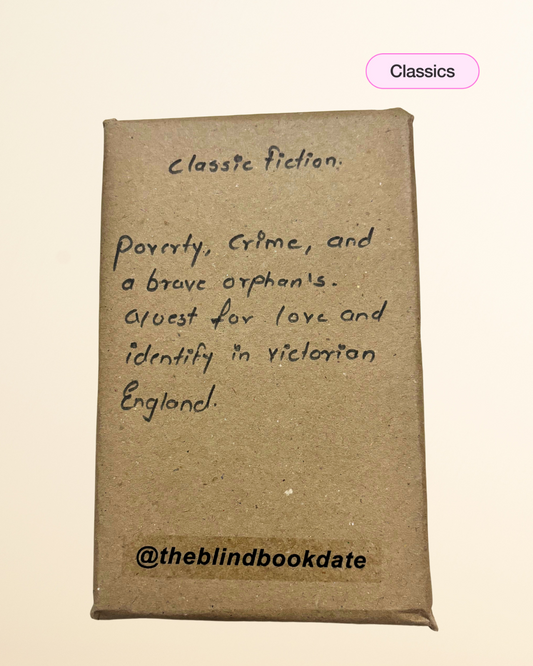 Classics
Classic fiction.
Poverty, Crime, and
a brave orphan's.
Quest for love and
identify in victorian
England.
@theblindbookdate